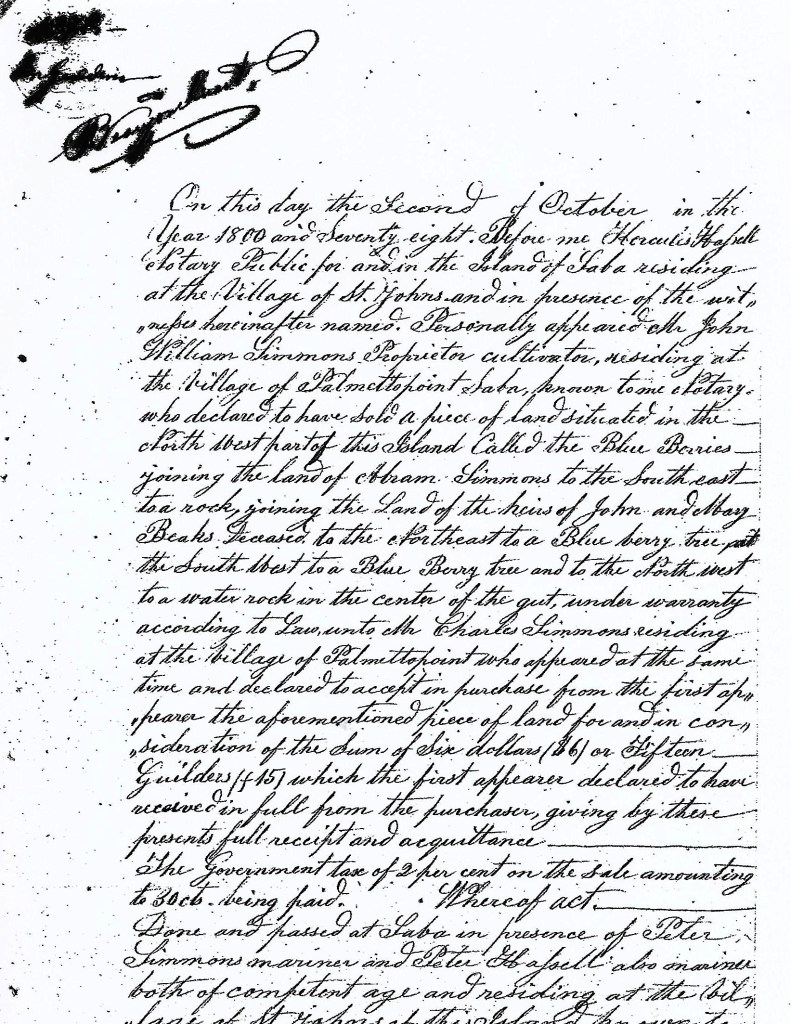 On this day the Second of October in the
Year 1800 and Seventy eight. Before me Hercules Hassell
Notary Public for and in the Island of Saba residing
at the Village of St. Johns and in presence of the wit„
„nesses hereinafter named. Personally appeared Mr John
William Simmons Proprietor cultivator, residing at
the Village of Palmettopoint Saba, known to me Notary.
who declared to have sold a piece of land situated in the
North West part of this Island Called the Blue Berries
joining the land of Abram Simmons to the South east
to a rock, joining the Land of the heirs of John and Mary
Beaks Deceased to the Northeast to a Blue berry tree,
the South West to a Blue Berry tree and to the North west
to a water rock in the center of the gut, under warranty
according to Law, unto Mr Charles Simmons residing
at the Village of Palmettopoint who appeared at the same
time and declared to accept in purchase from the first ap„
„pearer the aforementioned piece of land for and in con„
„sideration of the Sum of Six dollars ($6) or Fifteen
Guilders (f 15) which the first appearer declared to have
received in full from the purchaser, giving by these
presents full receipt and acquittance
The Government tax of 2 per cent on the sale amounting
to 30cts. being paid. Whereof act.
Done and passed at Saba in presence of Peter
Simmons mariner and Peter Hassell also mariner
both of competent age and residing at the Vil„
lage at St Johns at this Island known to